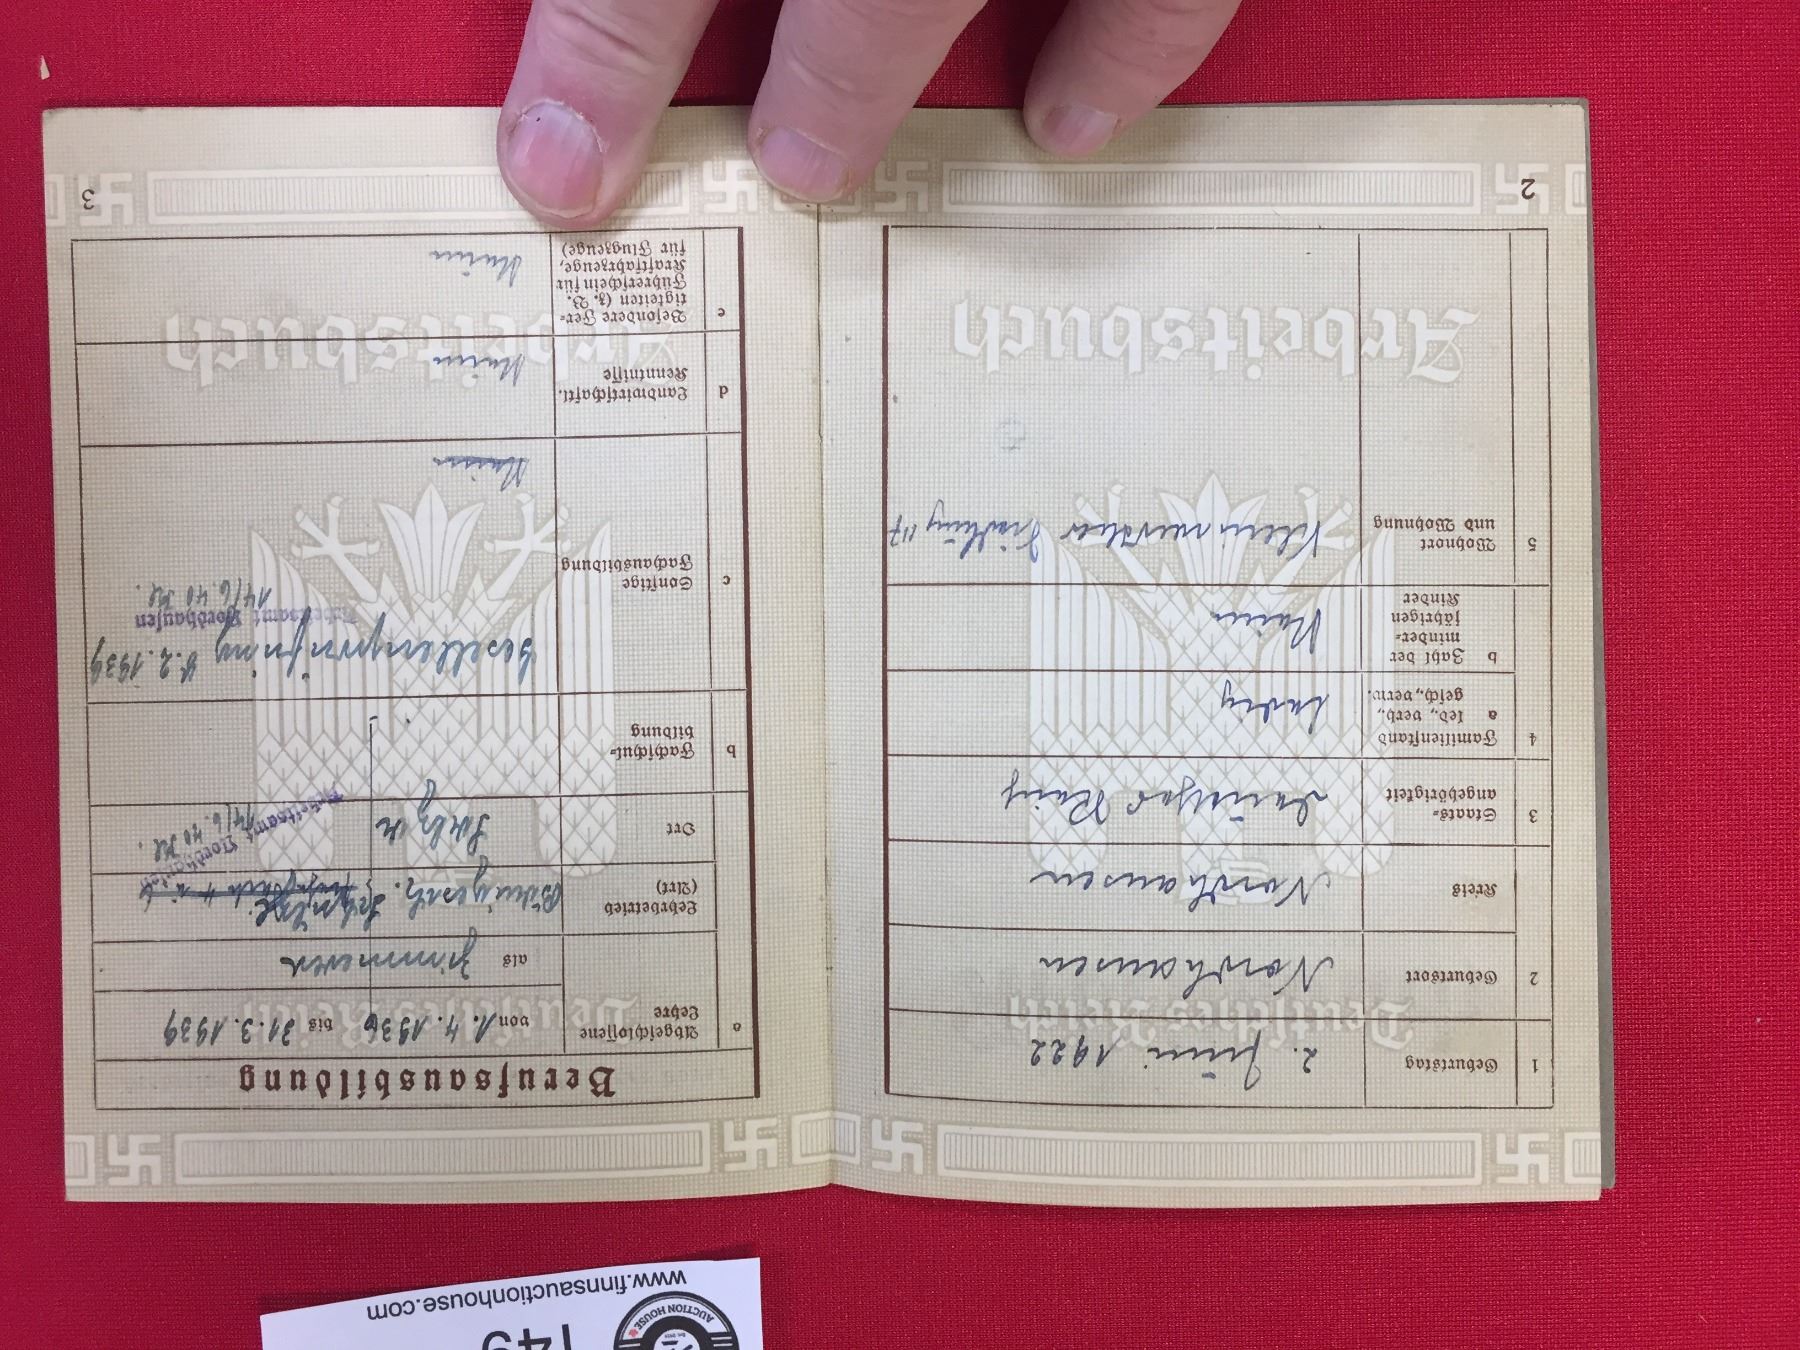 2
1 Geburtstag 2. Juni 1922
2 Geburtsort Nordhausen
Kreis Nordhausen
3 Staats-
angehörigkeit Deutsches Reich
4 Familienstand
a led., verh.,
gesch., verw. ledig
b Zahl der
minder-
jährigen
Kinder Keine
5 Wohnort
und Wohnung Kleinwerther
Deutsches Reich
Arbeitsbuch
3
Berufsausbildung
a Abgeschlossene
Lehre von 1. 4. 1936 bis 31. 3. 1939
als Zimmerer
Lehrbetrieb
(Art) Baugesch.
Ort
Arbeitsamt Nordhausen
14/6. 40
b Fachschul-
bildung
c Sonstige
Fachausbildung Keine
Gesellenprüfung 8. 2. 1939
Arbeitsamt Nordhausen
14/6. 40
d Landwirtschaftl.
Kenntnisse Keine
e Besondere Fer-
tigkeiten (z. B.
Führerschein für
Kraftfahrzeuge,
für Flugzeuge) Keine
Deutsches Reich
Arbeitsbuch
www.finnsauctionhouse.com
AUCTION HOUSE
149